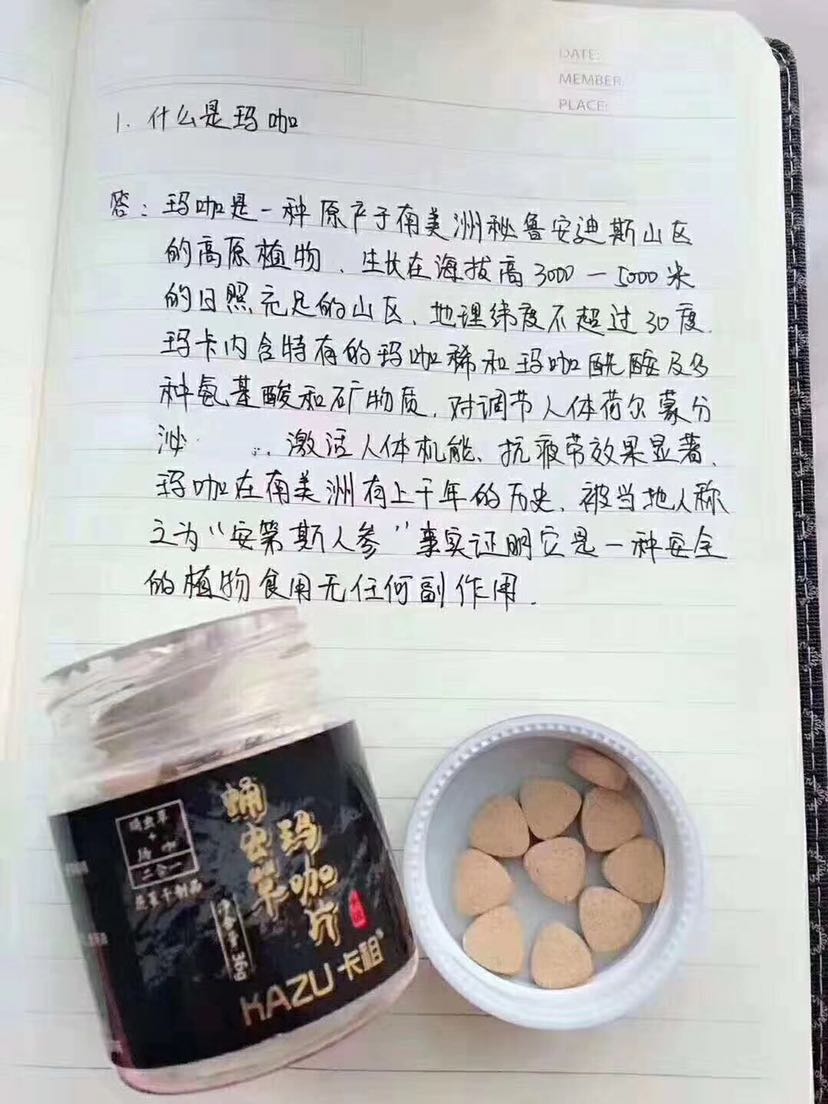 DATE:
MEMBER:
PLACE:
1. 什么是玛咖
答：玛咖是一种原产于南美洲秘鲁安迪斯山区
的高原植物、生长在海拔高3000一5000米
的日照充足的山区、地理纬度不超过30度.
玛卡内含特有的玛咖稀和玛咖酰酸及多
种氨基酸和矿物质，对调节人体荷尔蒙分
泌 激活人体机能、抗疲劳效果显著、
玛咖在南美洲有上千年的历史、被当地人称
之为“安第斯人参”事实证明它是一种安全
的植物食用无任何副作用.
蛹虫草
+
玛咖
二合一
蛹虫草
玛咖片
KAZU卡祖